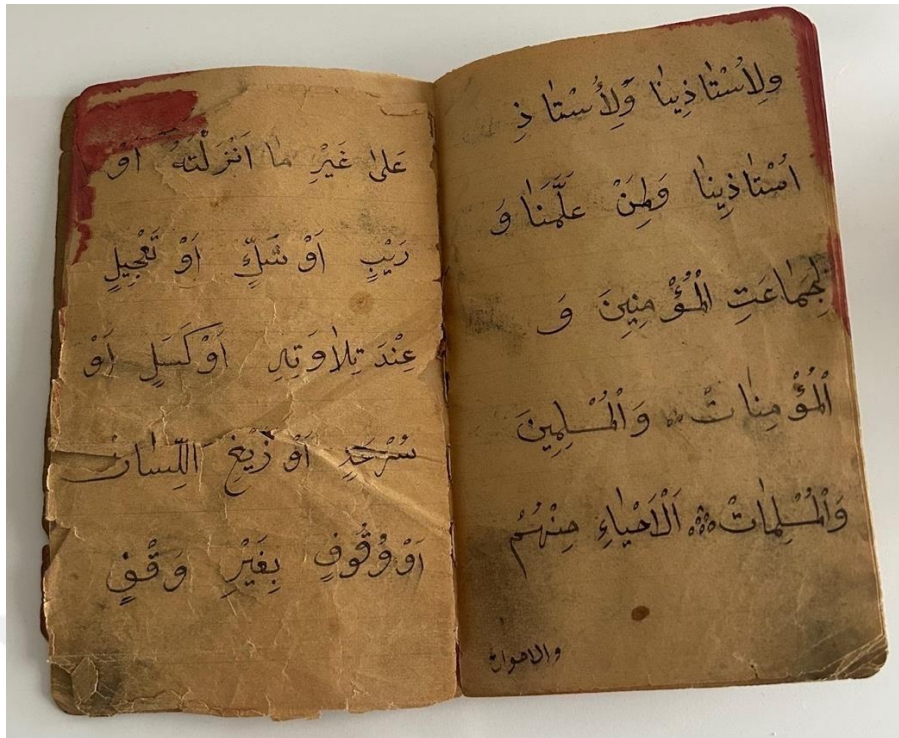 ولِاُسْتَاذِينَا وَلِاُسْتَاذِ
اُسْتَاذِينَا وَلِمَنْ عَلَّمَنَا وَ
لِجَمَاعَتِ الْمُؤْمِنِينَ وَ
الْمُؤْمِنَاتْ وَالْمُسْلِمِينَ
وَالْمُسْلِمَاتْ اَلْاَحْيَاءِ مِنْهُمْ
والاموات
عَلٰى غَيْرِ مَا اَنْزَلْتَهُ اَوْ
رَيْبٍ اَوْ شَكٍّ اَوْ تَعْجِيلٍ
عِنْدَ تِلَاوَتِهِ اَوْ كَسَلٍ اَوْ
سُرْعَةٍ اَوْ زَيْغِ اللِّسَانِ
اَوْ وُقُوفٍ بِغَيْرِ وَقْفٍ